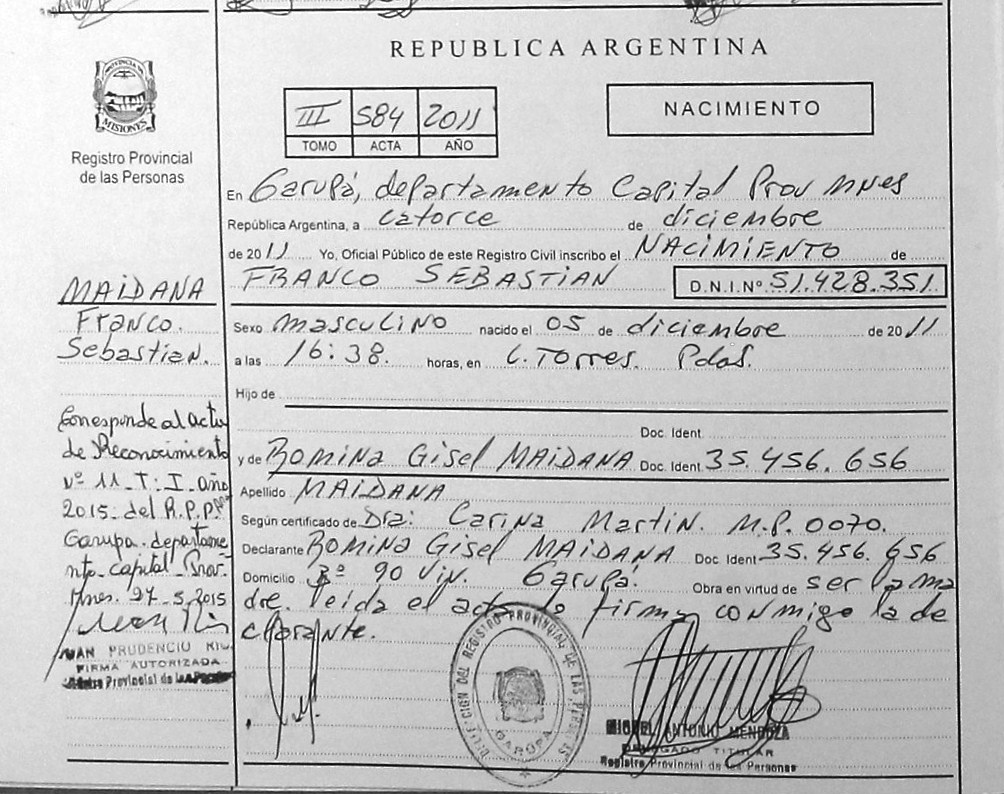 REPUBLICA ARGENTINA
PROVINCIA DE
MISIONES
Registro Provincial
de las Personas
III 584 2011
TOMO ACTA AÑO
NACIMIENTO
En Garupá, departamento Capital Prov Mnes
República Argentina, a catorce de diciembre
de 2011 Yo, Oficial Público de este Registro Civil inscribo el NACIMIENTO de
FRANCO SEBASTIAN D.N.I.Nº 51.428.351
Sexo masculino nacido el 05 de diciembre de 2011
a las 16:38. horas, en C. Torres. Pdas.
Hijo de
Doc. Ident.
y de Romina Gisel MAIDANA Doc. Ident. 35.456.656
Apellido MAIDANA
Según certificado de Dra: Carina Martin. M.P. 0070.
Declarante Romina Gisel MAIDANA Doc. Ident. 35.456.656
Domicilio Bº 90 Viv. Garupá. Obra en virtud de ser la ma
dre. leida el acta lo firma conmigo la de
clarante.
MAIDANA
Franco.
Sebastian.
Corresponde al acta
de Reconocimiento
Nº 11 - T: I - año
2015 - del R.P.P.
Garupa - departame
nto - capital - Prov.
Mnes. 27-5-2015
JUAN PRUDENCIO
FIRMA AUTORIZADA
Registro Provincial de las Personas
DIRECCION DEL REGISTRO PROVINCIAL DE LAS PERSONAS
GARUPA
MIGUEL ANTONIO MENDOZA
DELEGADO TITULAR
Registro Provincial de las Personas